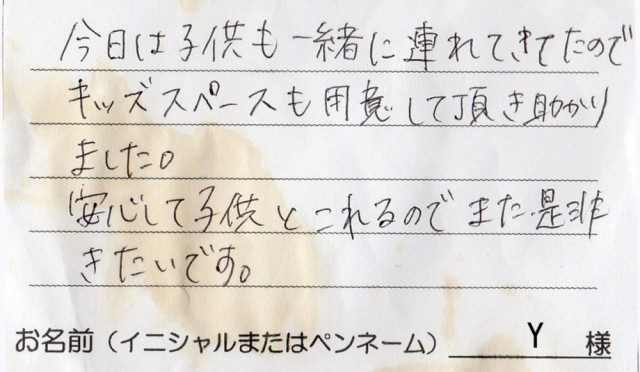 今日は子供も一緒に連れてきてたので
キッズスペースも用意して頂き助かり
ました。
安心して子供とこれるのでまた是非
きたいです。
お名前（イニシャルまたはペンネーム） Y 様